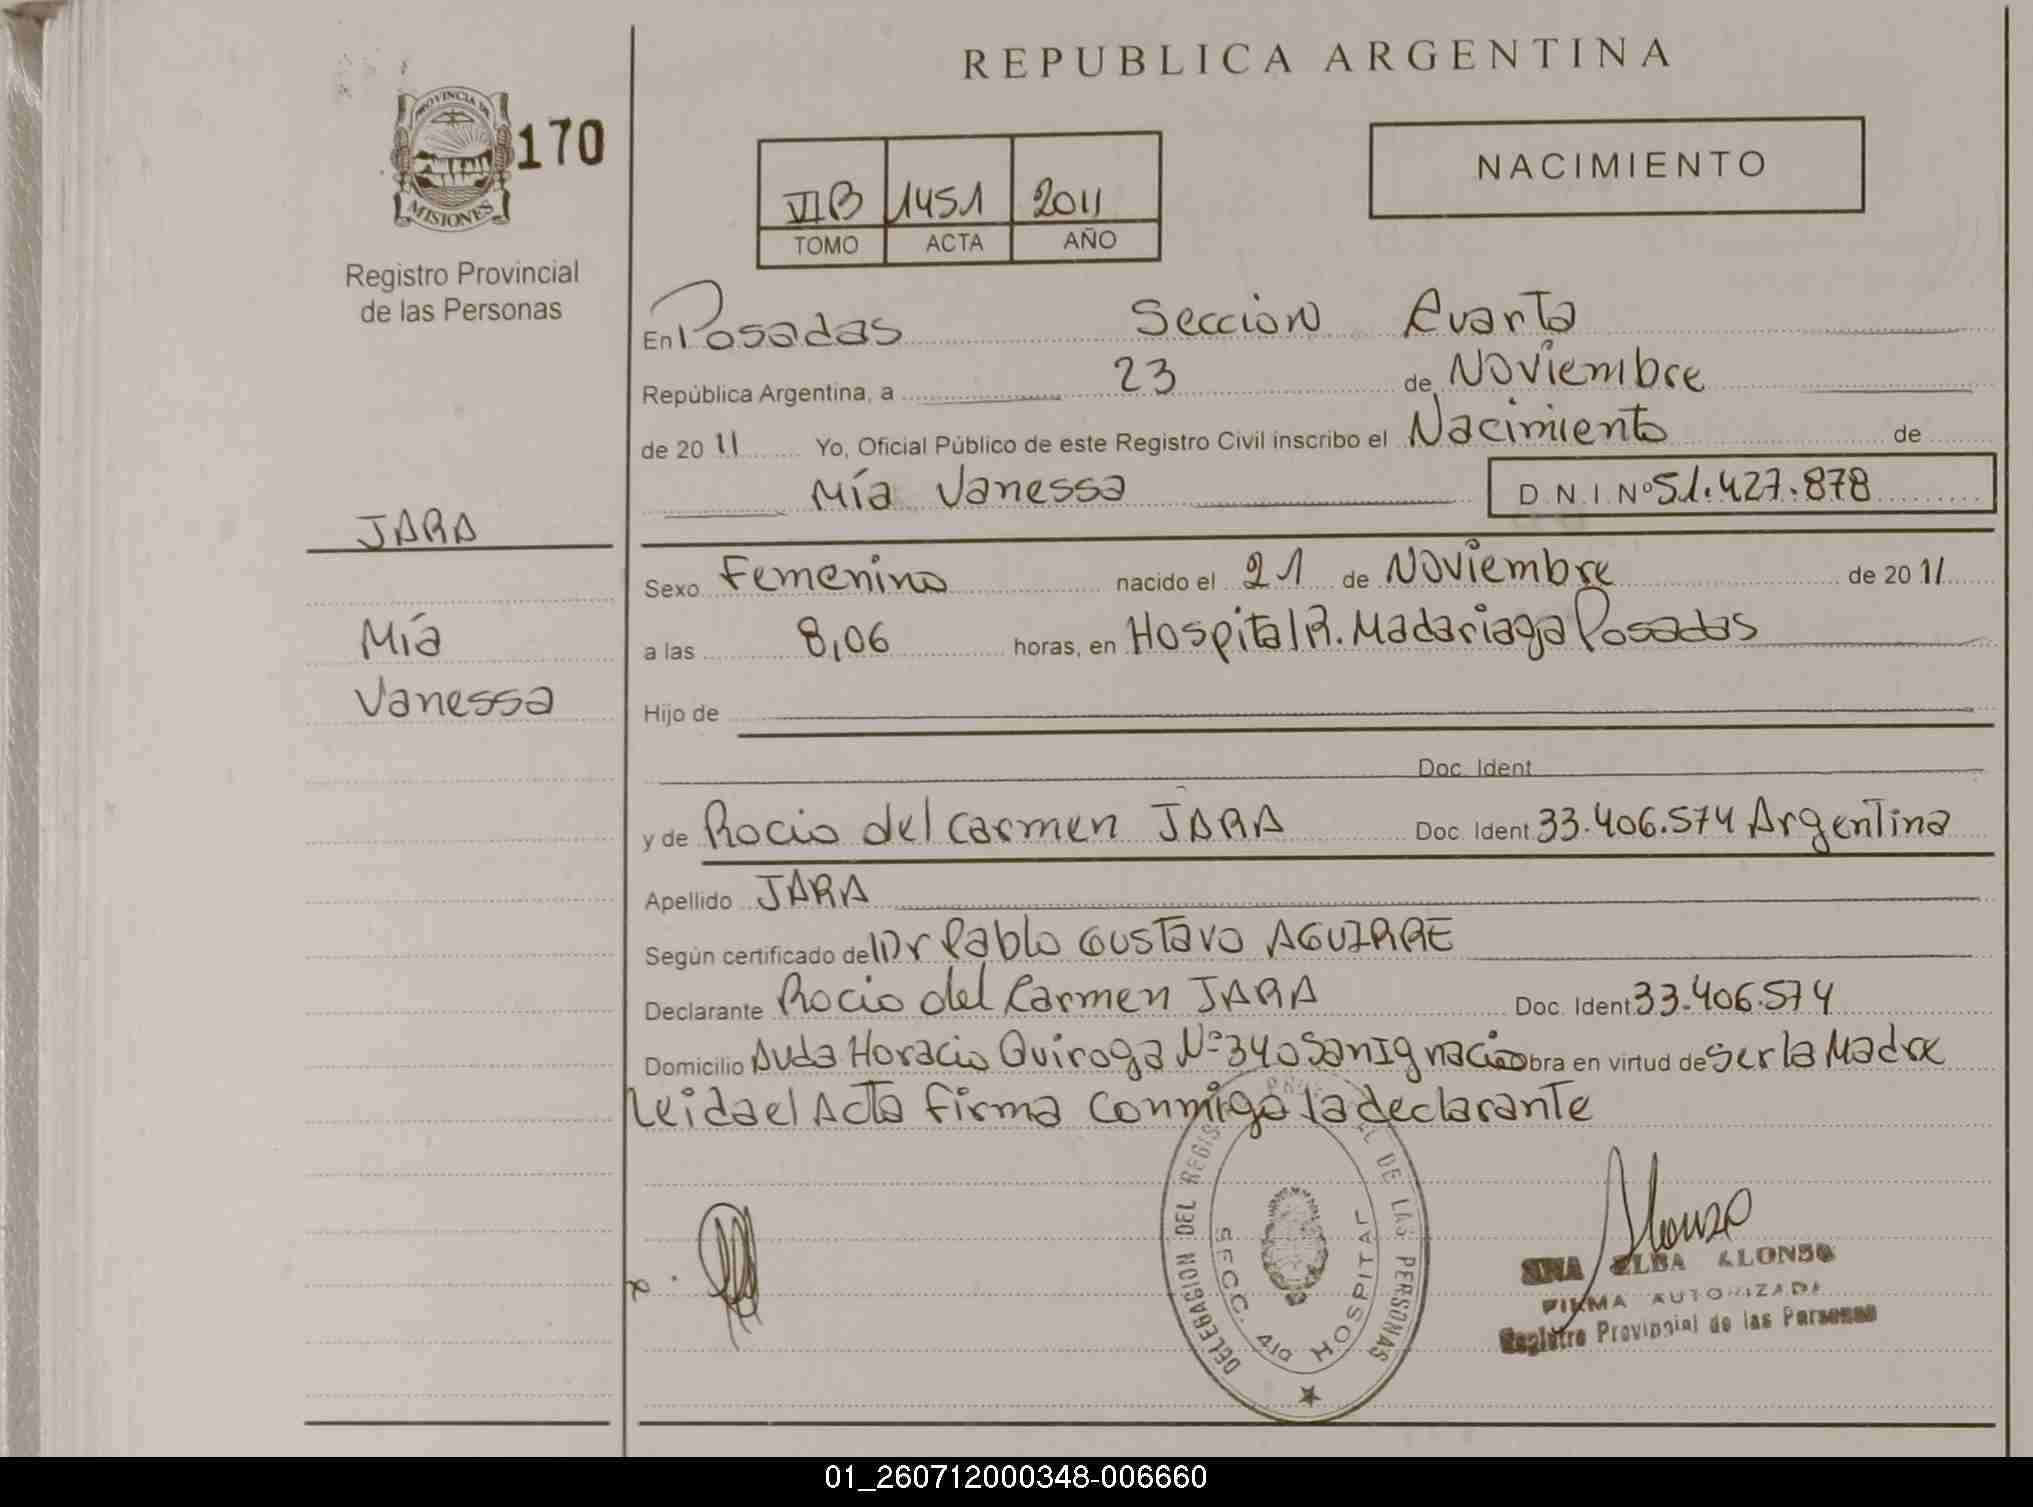 REPUBLICA ARGENTINA
PROVINCIA DE
MISIONES
170
Registro Provincial
de las Personas
NACIMIENTO
VIB 1451 2011
TOMO ACTA AÑO
En Posadas Seccion Cuarta
República Argentina, a 23 de Noviembre
de 2011 Yo, Oficial Público de este Registro Civil inscribo el Nacimiento de
Mía Vanessa D.N.I. Nº 51.427.878
JARA
Mía
Vanessa
Sexo Femenino nacido el 21 de Noviembre de 2011
a las 8,06 horas, en Hospital R. Madariaga Posadas
Hijo de
Doc. Ident.
y de Rocio del Carmen JARA Doc. Ident. 33.406.574 Argentina
Apellido JARA
Según certificado del Dr Pablo Gustavo AGUIRRE
Declarante Rocio del Carmen JARA Doc. Ident. 33.406.574
Domicilio Avda Horacio Quiroga Nº 340 San Ignacio obra en virtud de ser la Madre
Leida el Acta firma conmigo la declarante
DELEGACION DEL REGIST DE LAS PERSONAS
SECC. 4ta HOSPITAL
Alonso
ELBA ALONSO
FIRMA AUTORIZADA
Registro Provincial de las Personas
01_260712000348-006660